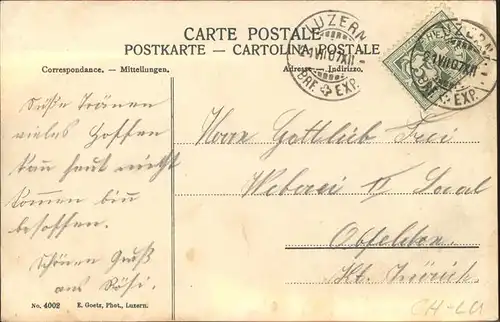 CARTE POSTALE
POSTKARTE - CARTOLINA POSTALE
Correspondance. - Mitteilungen.
Adresse - Indirizzo.
LUZERN
21.VII.07.XII-
BRF. EXP.
LUZERN
21.VII.07.XII
BRF. EXP.
Süße Tränen
vieles Hoffen
kan haut nicht
kommen bin
besoffen.
Schönen Gruß
aus Rösi.
Herr Gottlieb Frei
Weberei II Local
Obfelden
Kt. Zürich.
No. 4002 E. Goetz, Phot., Luzern.
CH-LU